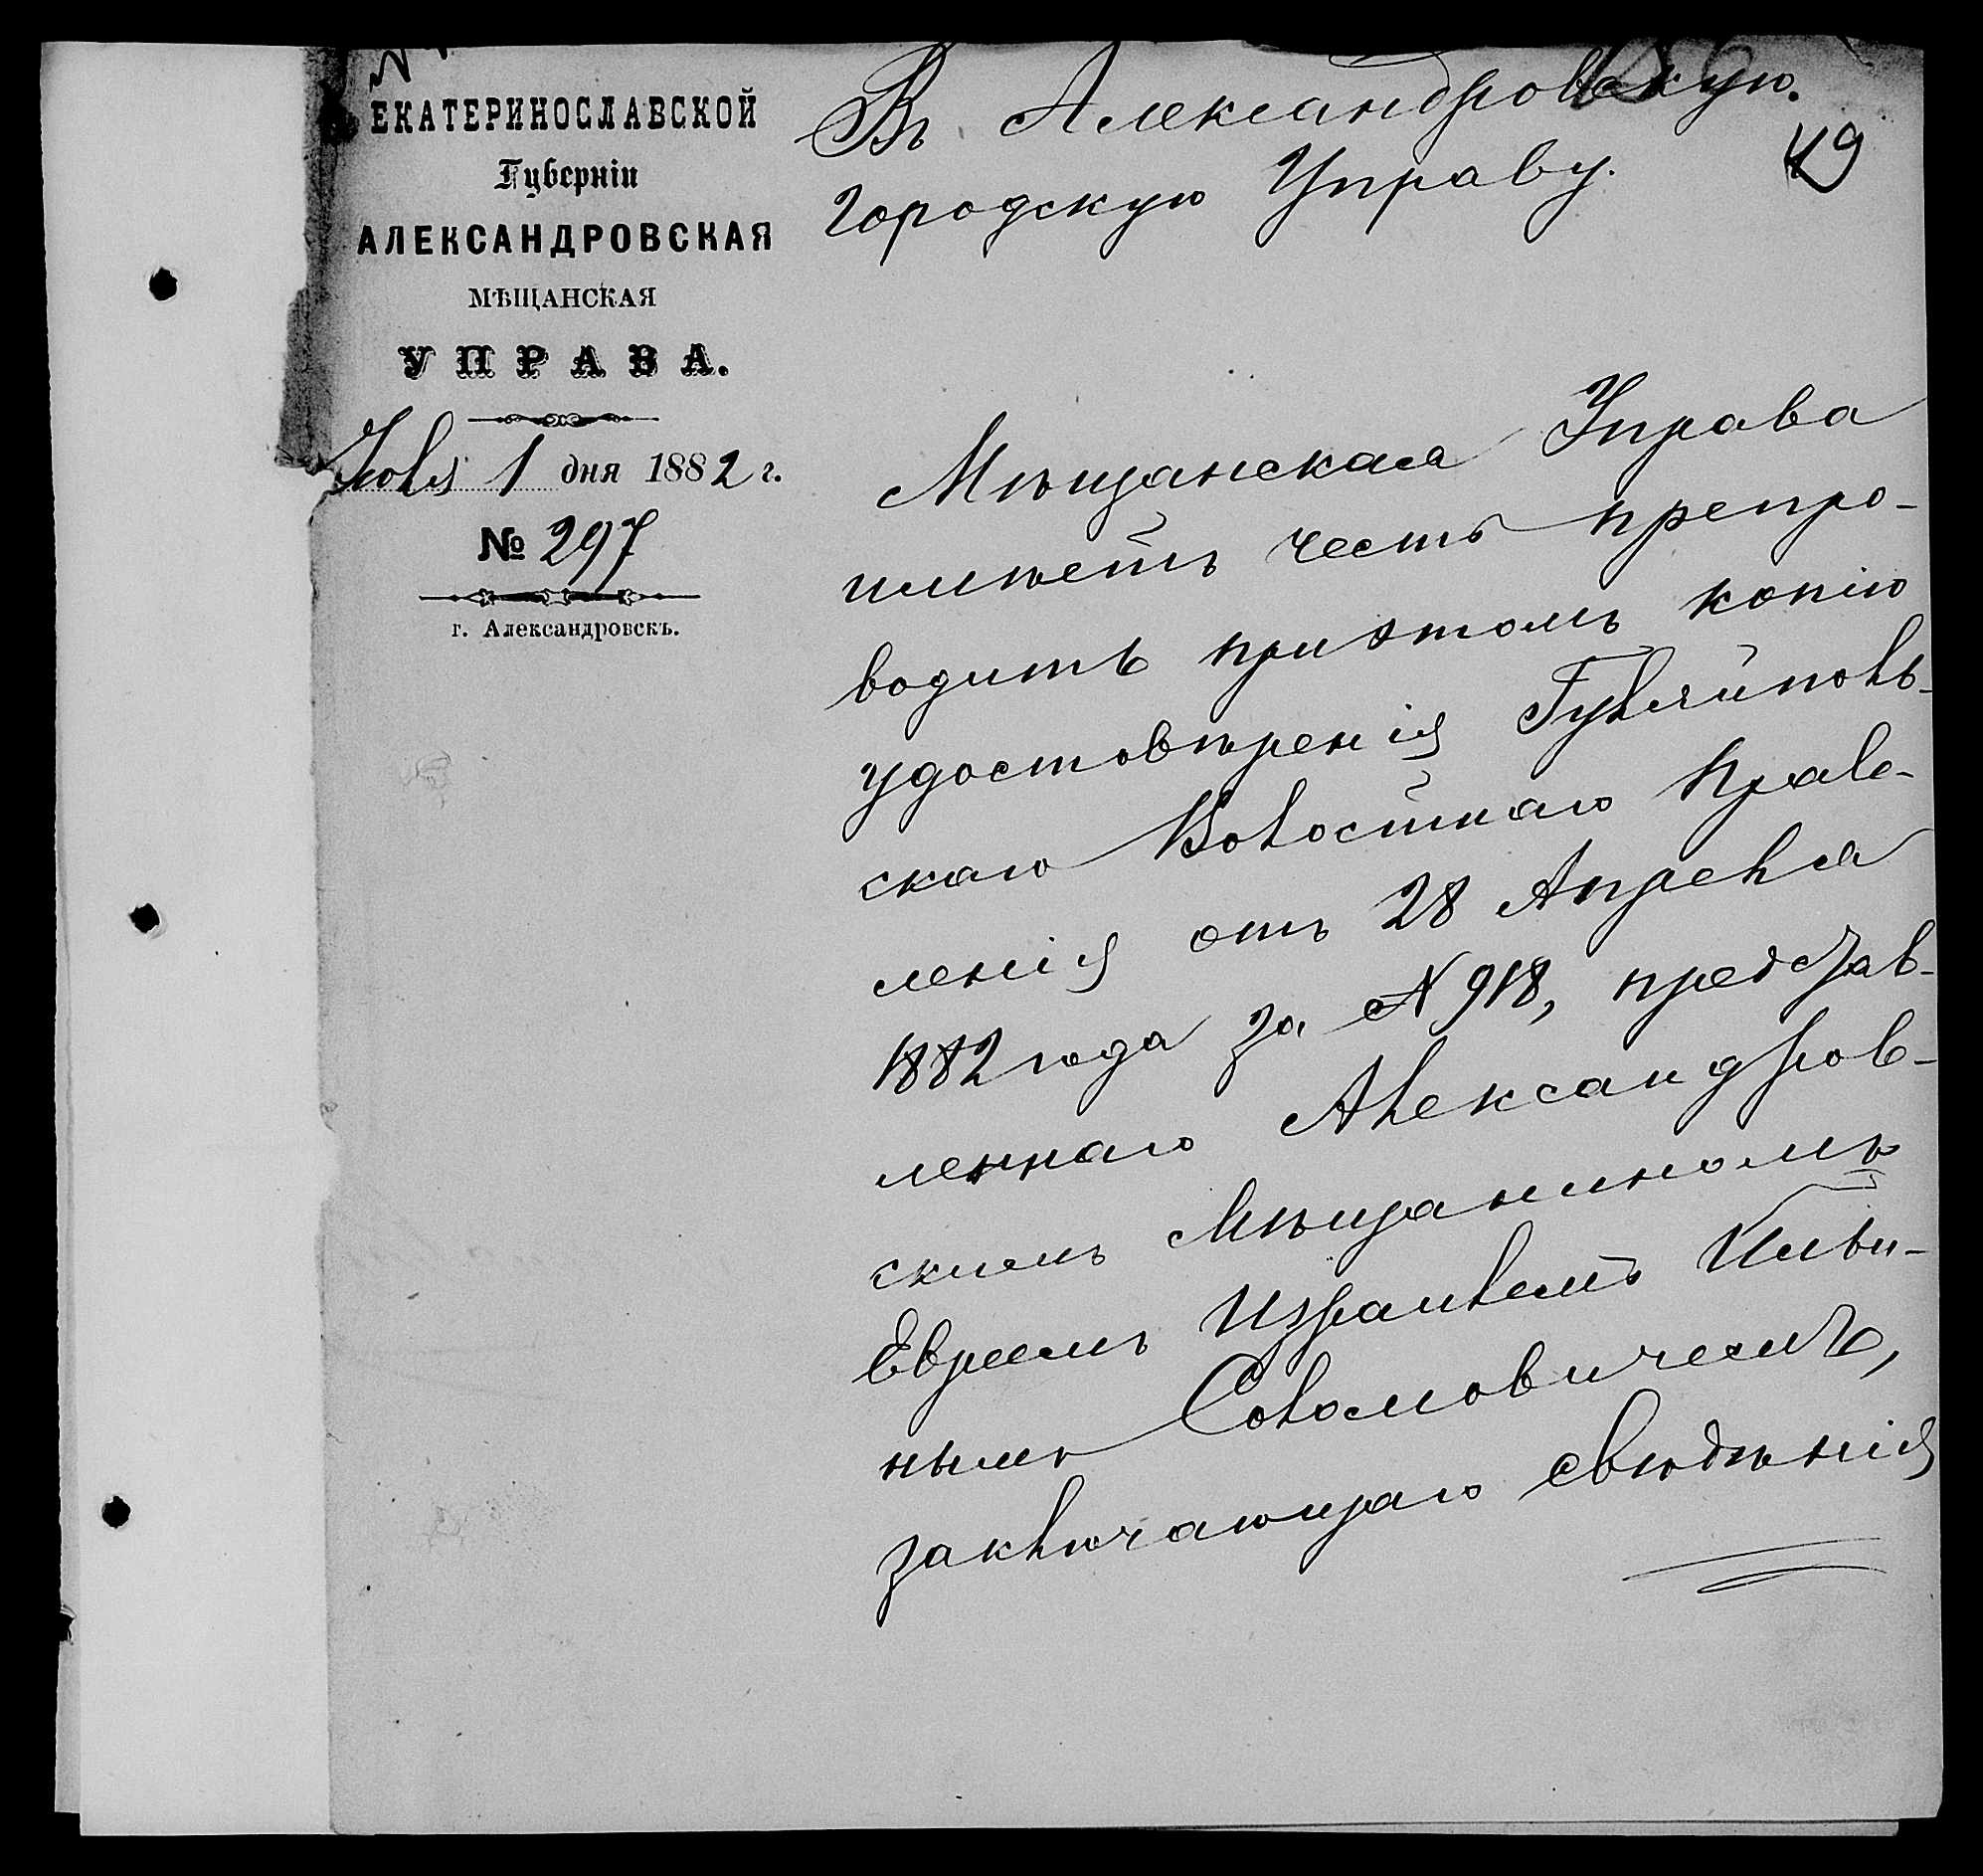 ЕКАТЕРИНОСЛАВСКОЙ
Губерніи
АЛЕКСАНДРОВСКАЯ
МѢЩАНСКАЯ
УПРАВА.
Іюля 1 дня 1882 г.
№ 297
г. Александровскъ.
Въ Александровскую.
Городскую Управу.
49
Мѣщанская Управа
имѣетъ честь препро-
водить приэтомъ копію
удостовѣренія Гуляйполь-
скаго Волостнаго Прав-
ленія отъ 28 Апреля
1882 года за № 918, представ-
леннаго Александров-
скимъ Мѣщаниномъ
Евреемъ Израилемъ
нымъ Соломовичемъ,
заключающаго свѣдѣнія